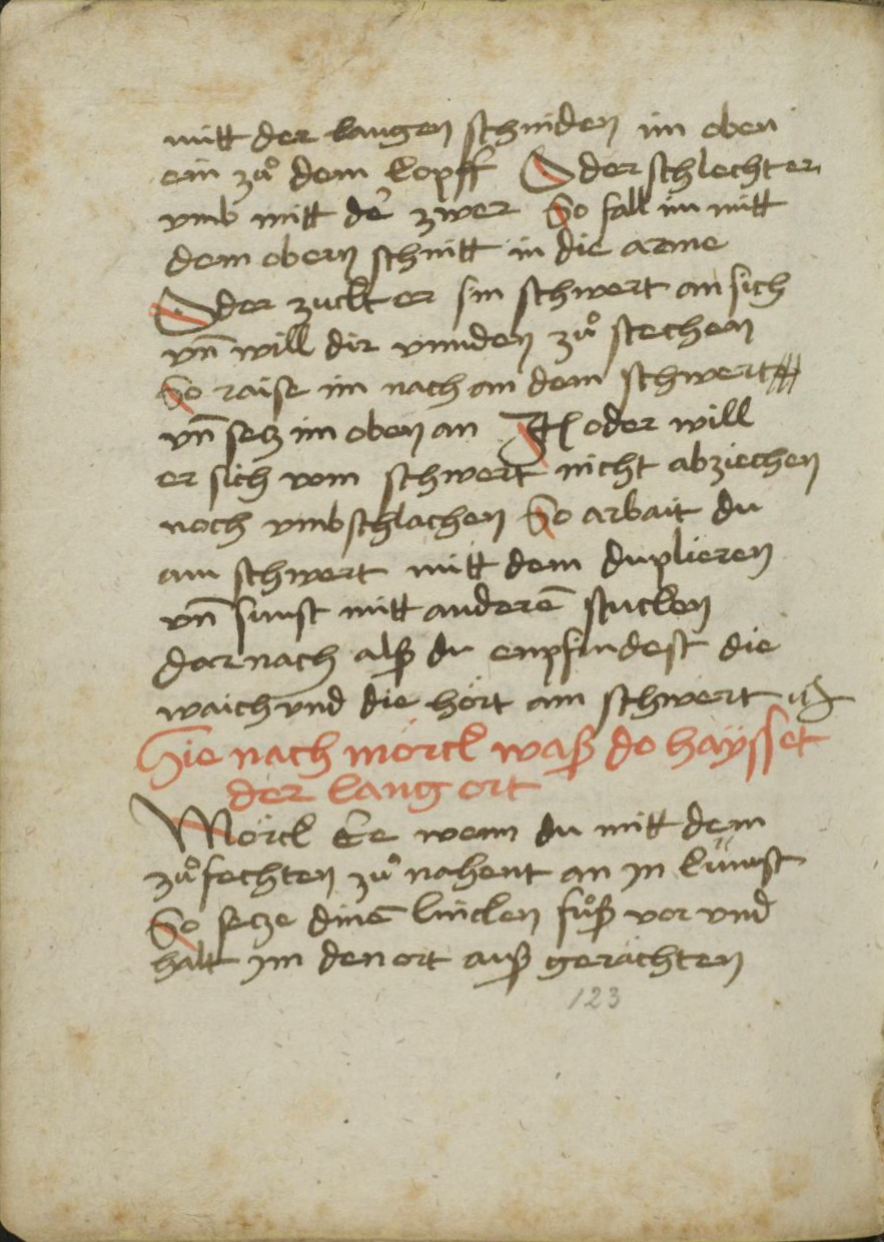 mitt der langen schniden im oben
ein zů dem kopff Oder schlecht er
vmb mitt der zwer So fall im mitt
dem obern schnitt in die arme
Oder zuckt er sin schwert an sich
vn̄ will dir vnnden zů stechen
So raise im nach an dem schwert
vn̄ secz im oben an Itͣ oder will
er sich vom schwert nicht abziechen
noch vmbschlachen So arbait du
am schwert mitt dem duplieren
vn̄ sunst mitt anderē stucken
darnach alß du enpfindest die
waich vnd die hört am schwert
Hie nach mörck waß do haÿsset
der lang ort
Mörck Ee wenn du mitt dem
zůfechten zů nahent an in kümst
So secze dinē lincken fůß vor vnd
halt im den ort auß gerächten
123